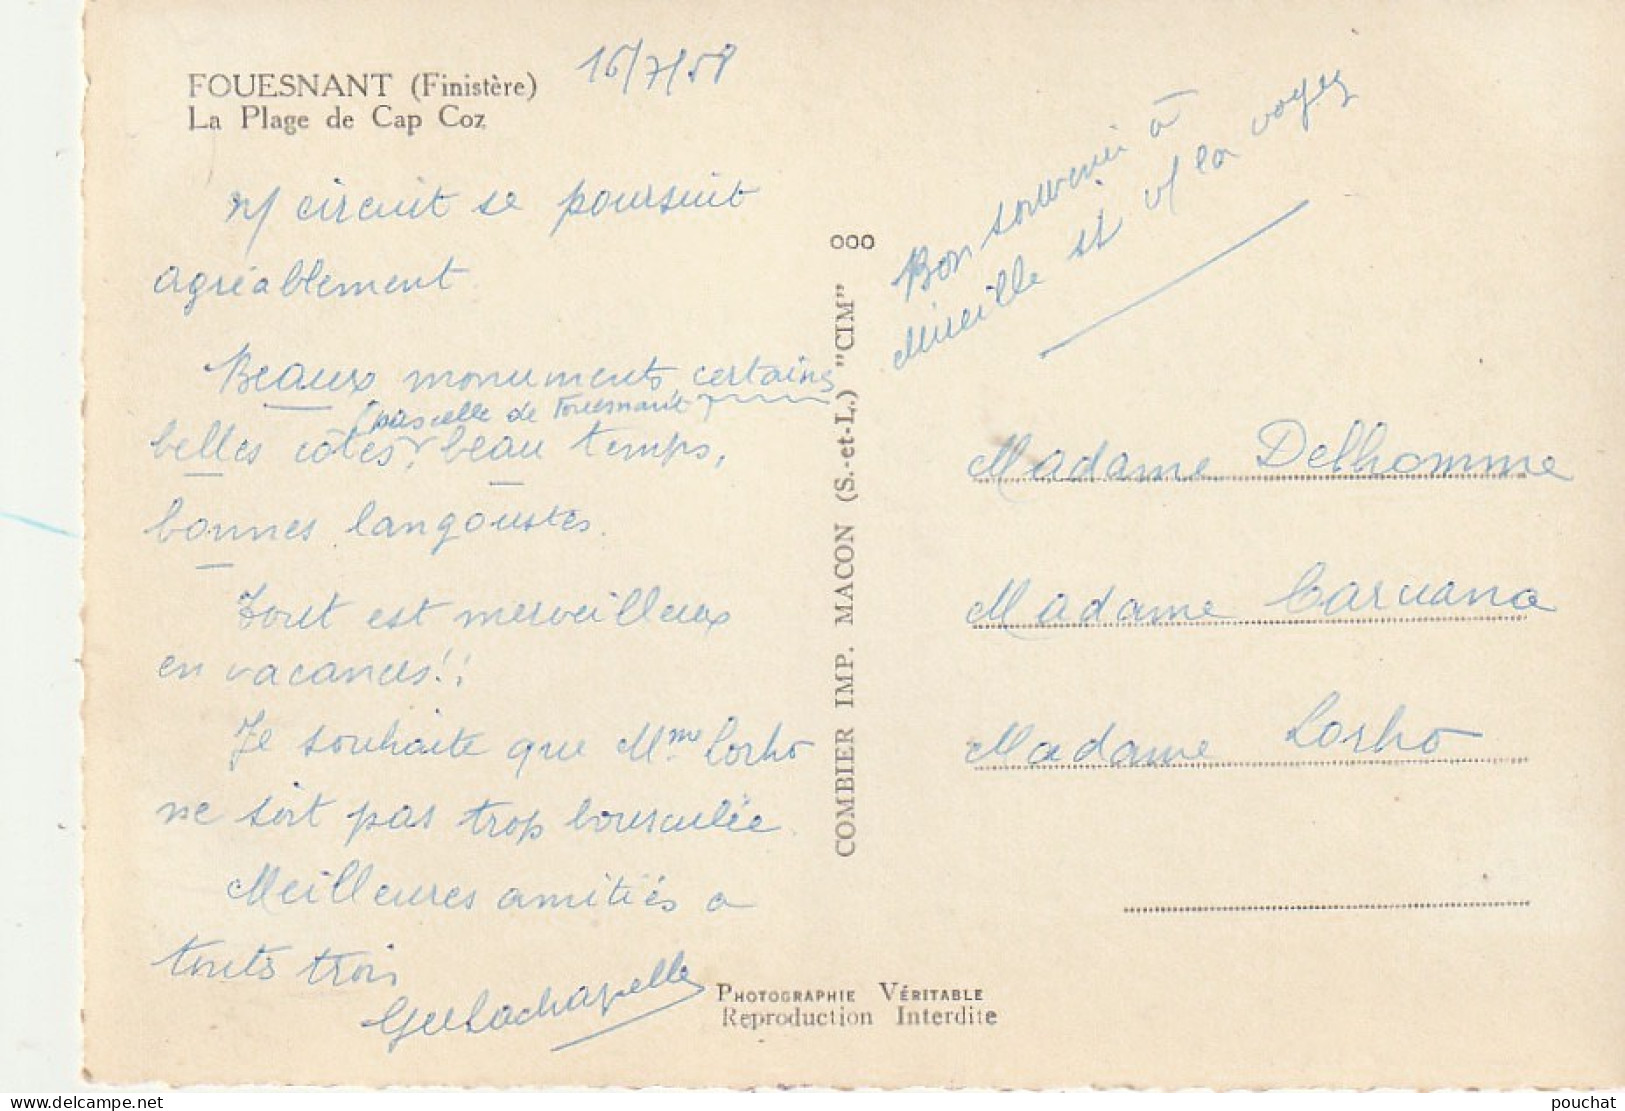 FOUESNANT (Finistère)
La Plage de Cap Coz
16/7/58
n/ circuit se poursuit
agréablement.
Beaux monuments, certains
(pas celle de Fouesnant)
belles côtes, beau temps,
bonnes langoustes.
Tout est merveilleux
en vacances!!
Je souhaite que Mme Lorho
ne soit pas trop bousculée.
Meilleures amitiés a
touts trois
Bon souvenir à
Mireille si v/ la voyez
COMBIER IMP. MACON (S.-et-L.) "CIM"
ooo
Madame Delhomme
Madame Caruana
Madame Lorho
PHOTOGRAPHIE VÉRITABLE
Reproduction Interdite
delcampe.net
pouchat